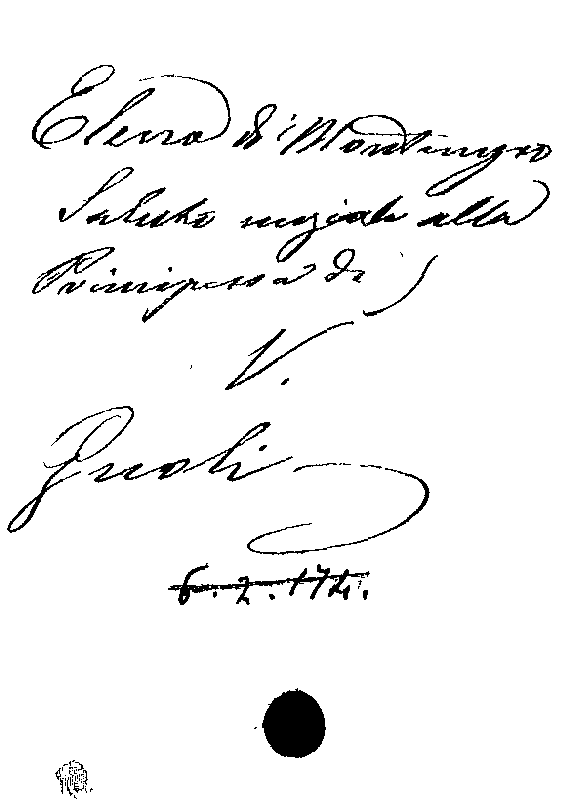 Elena di Montenegro
Saluto nuziale alla
Principessa di
V.
Gnoli
6.2.174.